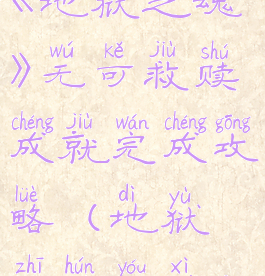 《地狱之魂
wú kě jiù shú
》无可救赎
chéng jiù wán chéng gōng
成就完成攻
lüè dì yù
略（地狱
zhī hún yóu xì